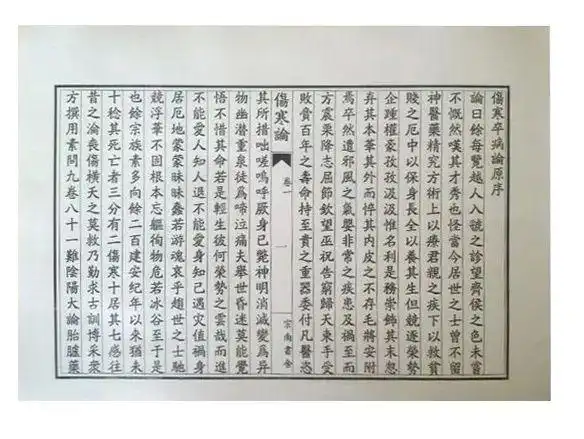 傷寒卒病論原序
論曰餘每覽越人入虢之診望齊侯之色未嘗
不慨然嘆其才秀也怪當今居世之士曾不留
神醫藥精究方術上以療君親之疾下以救貧
賤之厄中以保身長全以養其生但競逐榮勢
企踵權豪孜孜汲汲惟名利是務崇飾其末忽
棄其本華其外而悴其內皮之不存毛將安附
焉卒然遭邪風之氣嬰非常之疾患及禍至而
方震栗降志屈節欽望巫祝告窮歸天束手受
敗賫百年之壽命持至貴之重器委付凡醫恣
傷寒論 卷一 一 宗南書舍
其所措咄嗟嗚呼厥身已斃神明消滅變為異
物幽潛重泉徒為啼泣痛夫舉世昏迷莫能覺
悟不惜其命若是輕生彼何榮勢之雲哉而進
不能愛人知人退不能愛身知己遇災值禍身
居厄地蒙蒙昧昧蠢若游魂哀乎趨世之士馳
競浮華不固根本忘軀徇物危若冰谷至于是
也餘宗族素多向餘二百建安紀年以來猶未
十稔其死亡者三分有二傷寒十居其七感往
昔之淪喪傷橫夭之莫救乃勤求古訓博采眾
方撰用素問九卷八十一難陰陽大論胎臚藥